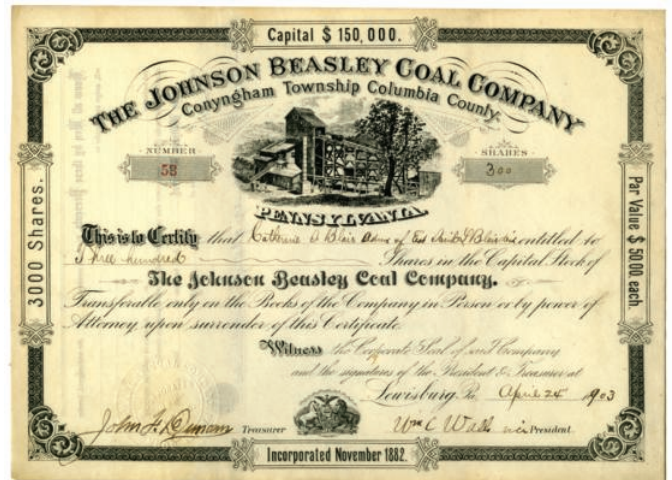 Capital $ 150,000.
THE JOHNSON BEASLEY COAL COMPANY
Conyngham Township Columbia County.
NUMBER
53
SHARES
300
PENNSYLVANIA.
3000 Shares.
Par Value $ 50.00 each.
This is to Certify that Catherine A Blair Adm of Est entitled to
Three hundred Shares in the Capital Stock of
The Johnson Beasley Coal Company.
Transferable only on the Books of the Company in Person or by power of
Attorney, upon surrender of this Certificate.
Witness the Corporate Seal of said Company
and the signatures of the President & Treasurer at
Lewisburg, Pa. April 24 1903
John F. Duncan Treasurer
Wm C Walls vice President.
Incorporated November 1882.